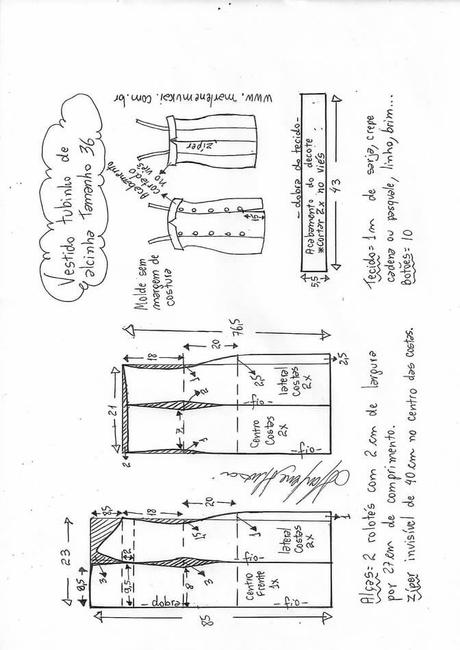 Vestido tubinho de
alcinha Tamanho 36
Molde sem
margem de
costura
Acabamento
cortado
no viés
15
ziper
www.marlenemukai.com.br
5,5
-dobra do tecido-
Acabamento do decote
*cortar 2x no viés
43
Tecido= 1m de sarja, crepe
cadena ou pasquale, linho, brim...
Botões= 10
23
9,5
8,5
18
20
3
2
9,5
1,5
8
3
1
-dobra-
Centro
Frente
1x
-fio-
lateral
Costas
2x
-fio-
1
85
21
2
18
20
1
2
7
1
2,5
Centro
Costas
2x
-fio-
lateral
Costas
2x
-fio-
2,5
76,5
Alças= 2 rolotês com 2 cm de largura
por 27 cm de comprimento.
Zíper invisível de 40 cm no centro das costas.